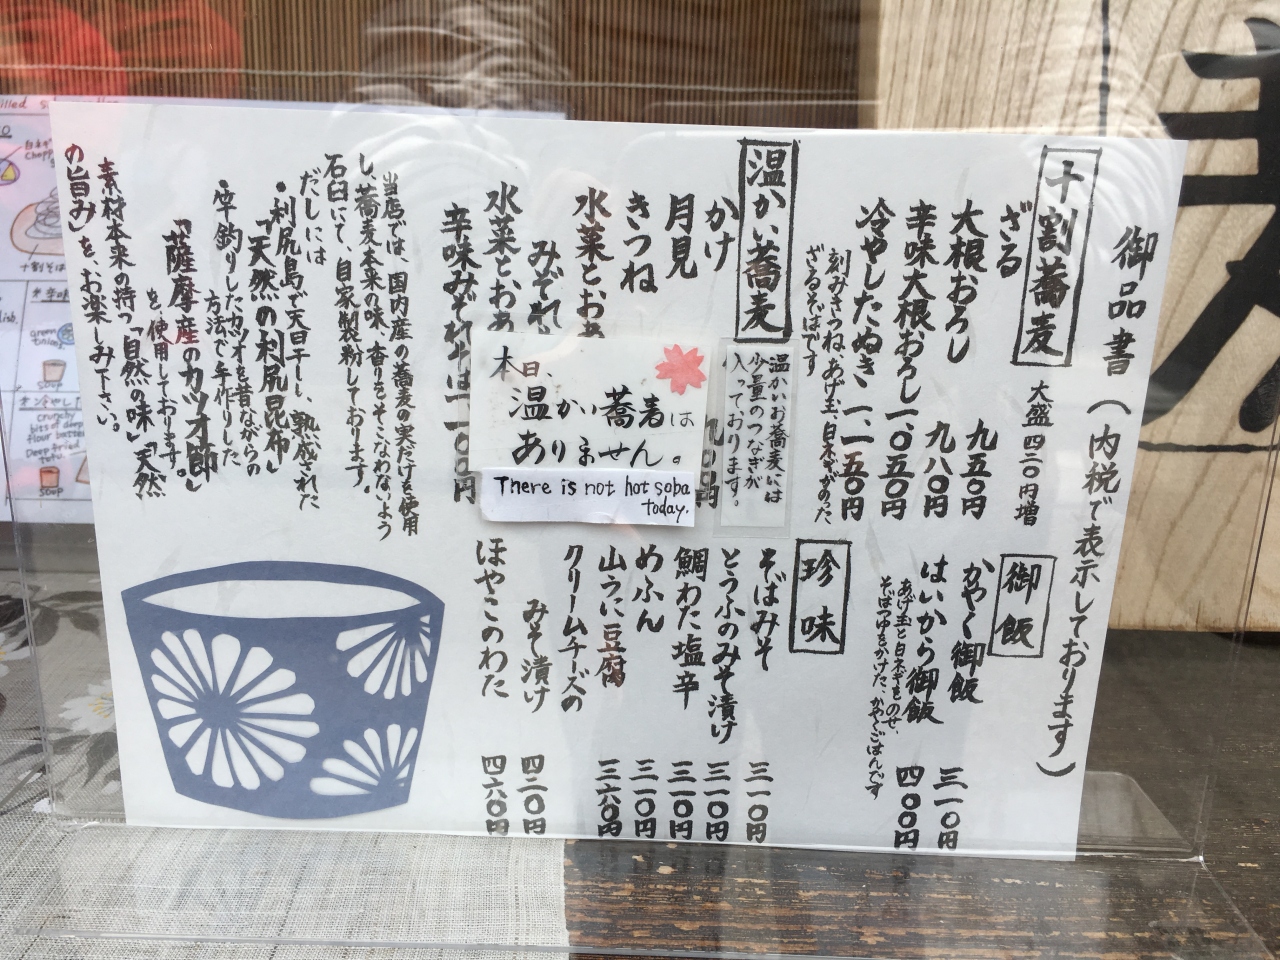 御品書(内税で表示しております)
十割蕎麦
大盛四二〇円増
ざる
大根おろし 九五〇円
辛味大根おろし 九八〇円
冷やしたぬき 一、〇五〇円
一、一五〇円
刻みきつね、あげ玉、白ネギがのった
ざるそばです
温かい蕎麦
温かいお蕎麦には
少量のつなぎが
入っております。
かけ
月見
きつね
水菜とおあ
みぞれ
水菜とおあ
辛味みぞれそば
本日、
温かい蕎麦は
ありません。
There is not hot soba
today.
当店では、国内産の蕎麦の実だけを使用
し、蕎麦本来の味、香りをそこなわないよう
石臼にて、自家製粉しております。
だしには
・利尻島で天日干しし、熟成された
「天然の利尻昆布」
・竿釣りしたカツオを昔ながらの
方法で手作りした
「薩摩産のカツオ節」
を、使用しております。
素材本来の持つ「自然の味」「天然
の旨み」を、お楽しみ下さい。
御飯
かやく御飯 三一〇円
はいから御飯 四〇〇円
あげ玉と白ネギをのせ、
そばつゆをかけた、かやくごはんです
珍味
そばみそ 三一〇円
とうふのみそ漬け 三一〇円
鯛わた塩辛 三一〇円
めふん 三一〇円
山うに豆腐 三六〇円
クリームチーズの
みそ漬け 四二〇円
ほやこのわた 四六〇円